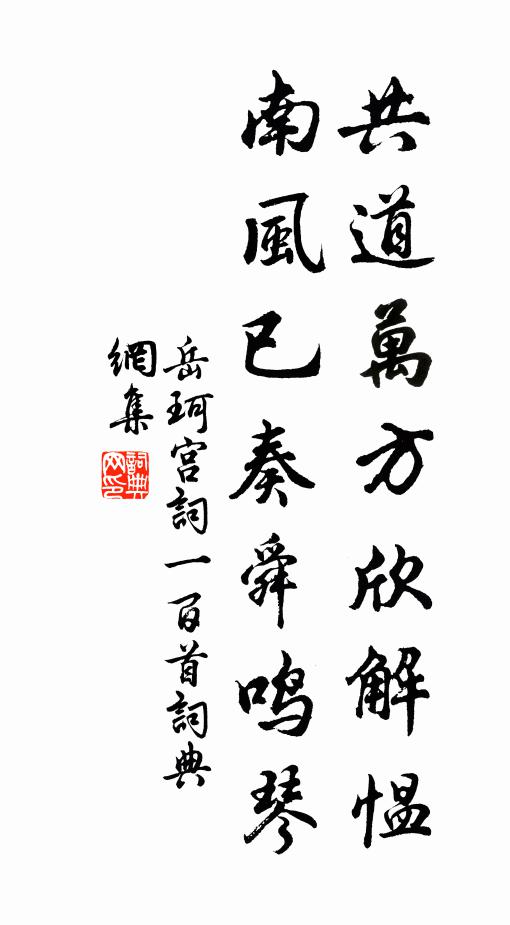 共道萬方欣解愠
南風已奏舜鳴琴
岳珂宫詞一百首詞典
網集
詞典
网印